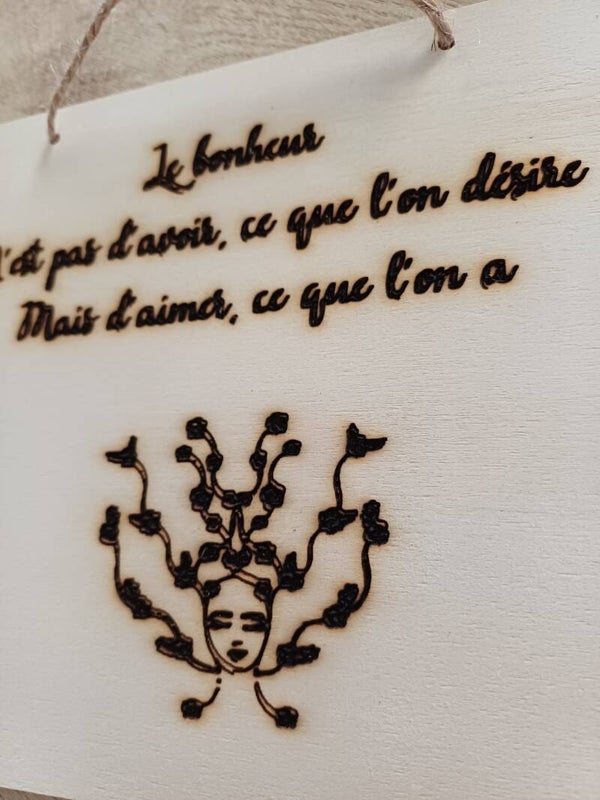 Le bonheur
n'est pas d'avoir, ce que l'on désire
Mais d'aimer, ce que l'on a